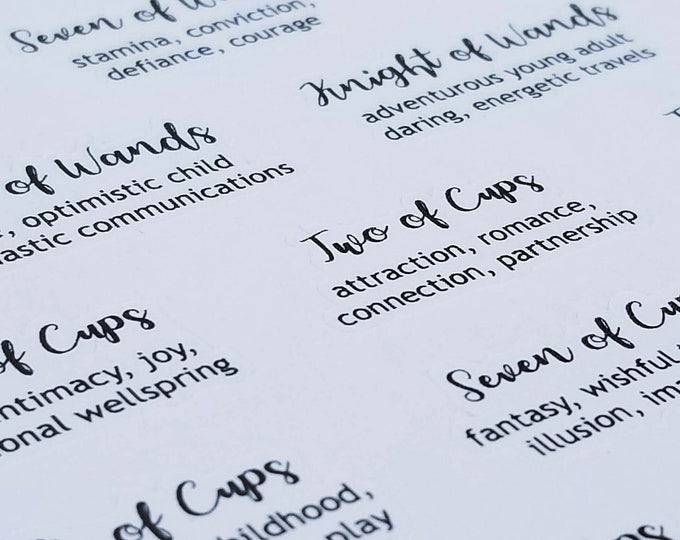 Seven of
stamina, conviction,
defiance, courage
Knight of Wands
adventurous young adult
daring, energetic travels
of Wands
optimistic child
communications
Two of Cups
attraction, romance,
connection, partnership
of Cups
intimacy, joy,
wellspring
Seven of
fantasy, wishful
illusion,
of Cups
play